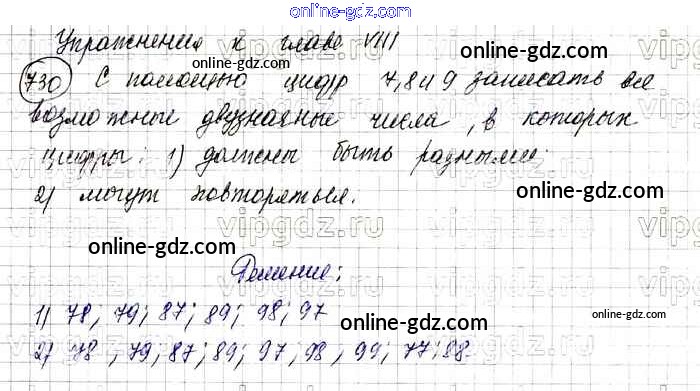 online-gdz.com
Упражнения к главе VIII
online-gdz.com
730 С помощью цифр 7, 8 и 9 записать все
возможные двузначные числа, в которых
цифры: 1) должны быть разными;
online-gdz.com
2) могут повторяться.
online-gdz.com
vipgdz.com
online-gdz.com
Решение:
online-gdz.com
1) 78; 79; 87; 89; 98; 97
online-gdz.com
2) 78, 79; 87; 89; 97, 98, 99; 77; 88
online-gdz.com